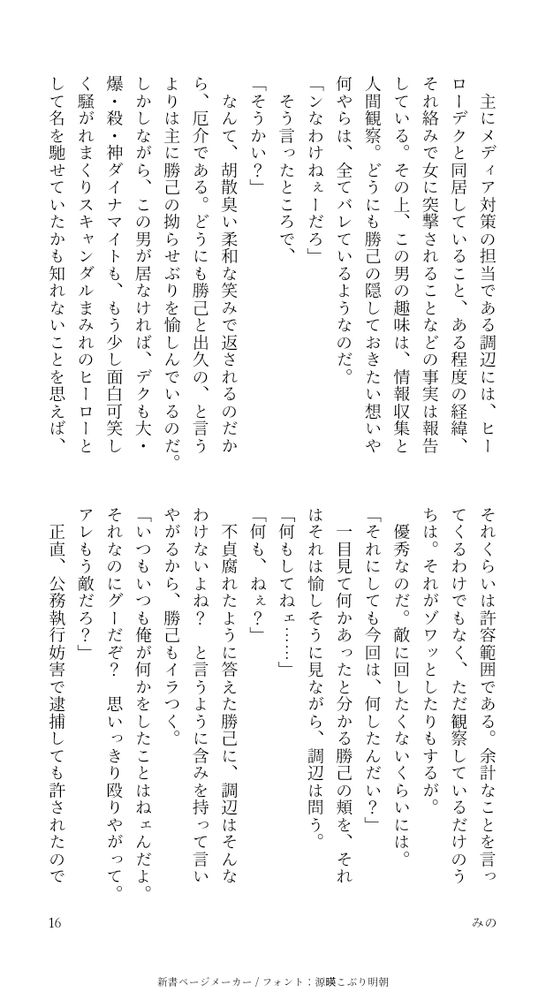 主にメディア対策の担当である調辺には、ヒー
ローデクと同居していること、ある程度の経緯、
それ絡みで女に突撃されることなどの事実は報告
している。その上、この男の趣味は、情報収集と
人間観察。どうにも勝己の隠しておきたい想いや
何やらは、全てバレているようなのだ。
「ンなわけねぇーだろ」
　そう言ったところで、
「そうかい？」
　なんて、胡散臭い柔和な笑みで返されるのだか
ら、厄介である。どうにも勝己と出久の、と言う
よりは主に勝己の拗らせぶりを愉しんでいるのだ。
しかしながら、この男が居なければ、デクも大・
爆・殺・神ダイナマイトも、もう少し面白可笑し
く騒がれまくりスキャンダルまみれのヒーローと
して名を馳せていたかも知れないことを思えば、
それくらいは許容範囲である。余計なことを言っ
てくるわけでもなく、ただ観察しているだけのう
ちは。それがゾワッとしたりもするが。
　優秀なのだ。敵に回したくないくらいには。
「それにしても今回は、何したんだい？」
　一目見て何かあったと分かる勝己の頬を、それ
はそれは愉しそうに見ながら、調辺は問う。
「何もしてねェ……」
「何も、ねぇ？」
　不貞腐れたように答えた勝己に、調辺はそんな
わけないよね？　と言うように含みを持って言い
やがるから、勝己もイラつく。
「いつもいつも俺が何かをしたことはねェんだよ。
それなのにグーだぞ？　思いっきり殴りやがって。
アレもう敵だろ？」
　正直、公務執行妨害で逮捕しても許されたので
16
みの
新書ページメーカー / フォント：源暎こぶり明朝